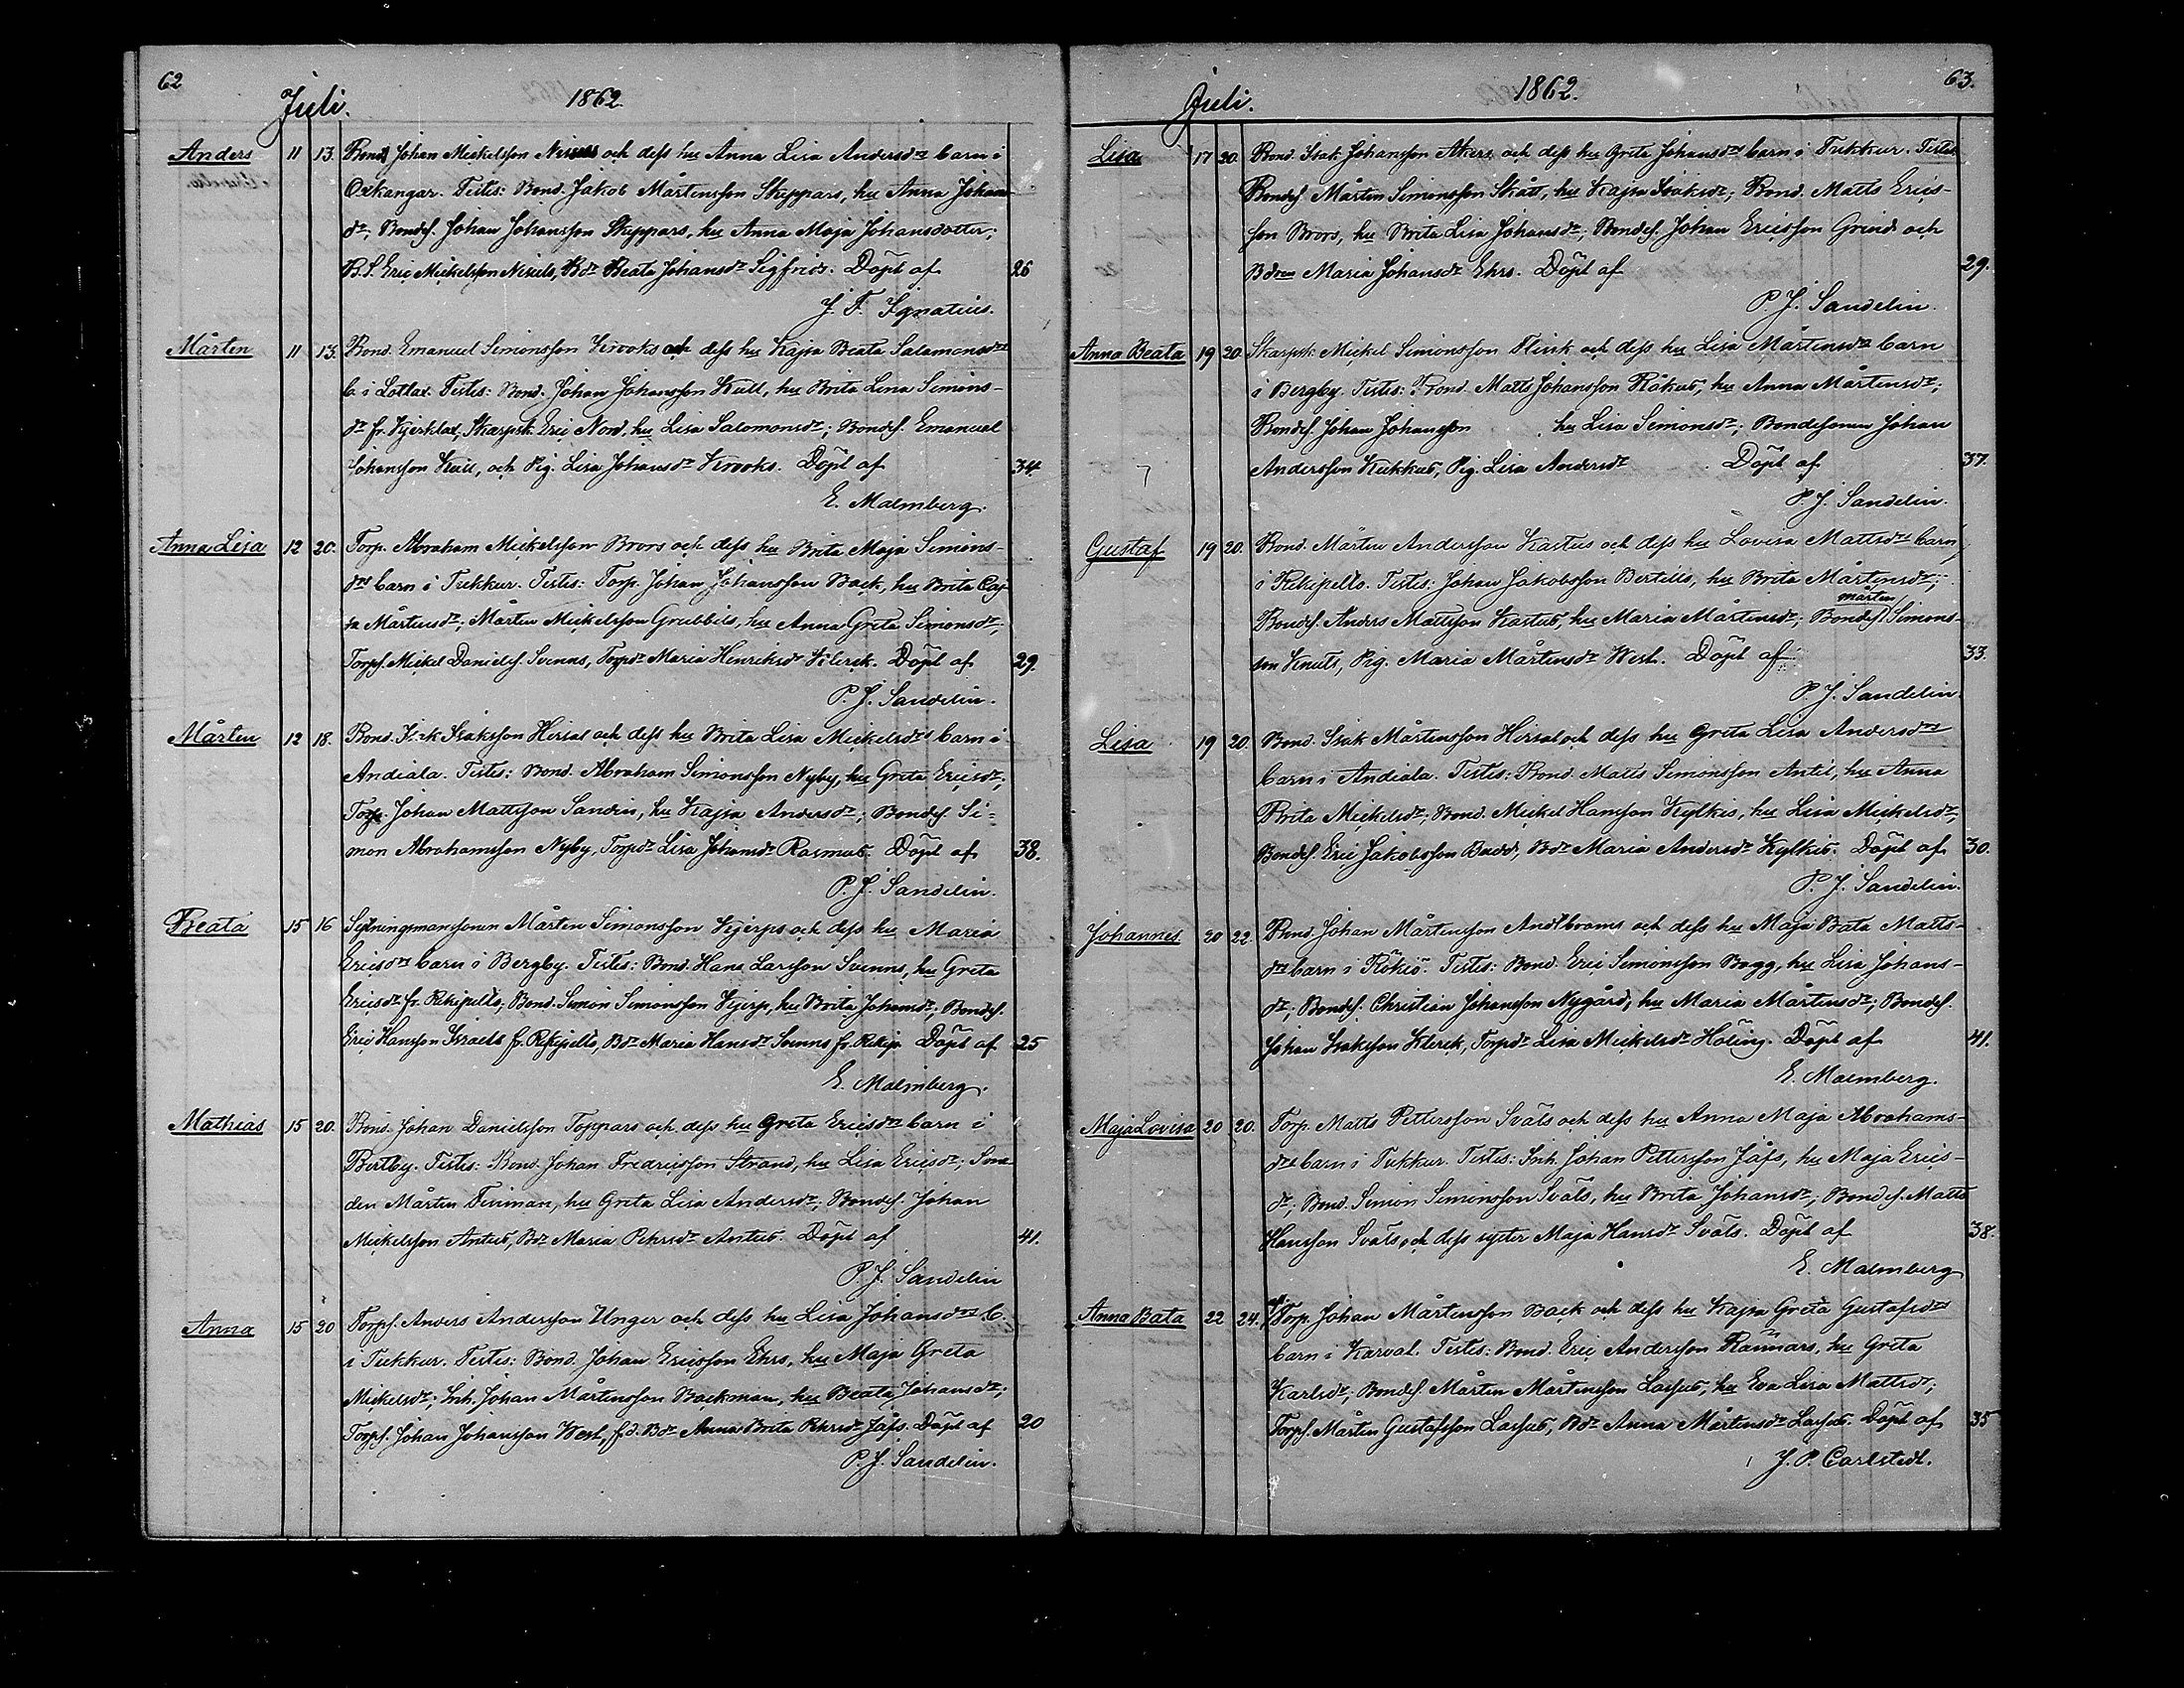 62
Juli. 1862.
Anders 11 13. Bond. Johan Mickelsson och dess hu Anna Lisa Andersdrs barn i
Oxkangar. Testes: Bond. Jakob Mårtensson Skeppars, hu Anna Johans
dr; Bondes. Johan Johansson Skeppars, hu Anna Maja Johansdotter;
B.S. Eric Mickelsson Nissils, Bdr Beata Johansdr Sigfrids. Döpt af 26
J. F. Ignatius.
Mårten 11 13. Bond. Emanuel Simonsson Krooks och dess hu Kajsa Beata Salamonsdrs
b. i Lotlax. Testes: Bond. Johan Johansson Kull, hu Brita Lena Simons-
dr fr. Kjerklax, Skarpsk. Eric Nord, hu Lisa Salomonsdr; Bondes. Emanuel
Johansson Kull, och Pig. Lisa Johansdr Krooks. Döpt af 34.
E. Malmberg.
Anna Lisa 12 20. Torp. Abraham Mickelsson Brors och dess hu Brita Maja Simons-
drs barn i Tukkur. Testes: Torp. Johan Johansson Back, hu Brita Caj-
sa Mårtensdr; Mårten Mickelsson Grubbils, hu Anna Greta Simonsdr;
Torps. Mickel Daniels. Svenns, Torpdr Maria Henriksdr Klerck. Döpt af 29.
P. J. Sandelin.
Mårten 12 18. Bond. Isak Isaksson Hirsal och dess hu Brita Lisa Mickelsdrs barn i
Andiala. Testes: Bond. Abraham Simonsson Nyby, hu Greta Ericsdr;
Torp. Johan Mattsson Sandin, hu Kajsa Andersdr; Bondes. Si-
mon Abrahamsson Nyby, Torpdr Lisa Johansdr Rasmus. Döpt af 38.
P. J. Sandelin.
Beata 15 16 Sexningsmanssonen Mårten Simonsson Kjerps och dess hu Maria
Ericsdrs barn i Bergby. Testes: Bond. Hans Larsson Svenns, hu Greta
Ericsdr fr. Rekipelto; Bond. Simon Simonsson Kjerp, hu Brita Johansdr; Bondes.
Eric Hansson Israels fr. Rekipelto, Bdr Maria Hansdr Svenns fr. Rekip. Döpt af 25
E. Malmberg.
Mathias 15 20. Bond. Johan Danielsson Toppars och dess hu Greta Ericsdrs barn i
Bertby. Testes: Bond. Johan Fredricsson Strand, hu Lisa Ericsdr; Sme-
den Mårten Finman, hu Greta Lisa Andersdr; Bondes. Johan
Mickelsson Antus, Bdr Maria Pehrsdr Antus. Döpt af 41.
P. J. Sandelin
Anna 15 20 Torps. Anders Andersson Unger och dess hu Lisa Johansdrs b.
i Tukkur. Testes: Bond. Johan Ericsson Ehrs, hu Maja Greta
Mickelsdr; Inh. Johan Mårtensson Backman, hu Beata Johansdr;
Torps. Johan Johansson West, f.d. Bdr Anna Brita Pehrsdr Jåfs. Döpt af 20
P. J. Sandelin.
63.
Juli. 1862.
Lisa 17 20. Bond. Isak Johansson Akers och dess hu Greta Johansdrs barn i Tukkur. Testes
Bondes. Mårten Simonsson Skått, hu Kajsa Isaksdr; Bond. Matts Erics-
son Brors, hu Brita Lisa Johansdr; Bondes. Johan Ericsson Grinds och
Bdren Maria Johansdr Ehrs. Döpt af 29.
P. J. Sandelin.
Anna Beata 19 20. Skarpsk. Mickel Simonsson Flink och dess hu Lisa Mårtensdrs barn
i Bergby. Testes: Bond. Matts Johansson Råkus, hu Anna Mårtensdr;
Bondes. Johan Johansson hu Lisa Simonsdr; Bondesonen Johan
Andersson Kukkus, Pig. Lisa Andersdr Döpt af 37.
P. J. Sandelin.
Gustaf 19 20. Bond. Mårten Andersson Kartus och dess hu Lovisa Mattsdrs barn
i Rekipelto. Testes: Johan Jakobsson Bertills, hu Brita Mårtensdr;
Bondes. Anders Mattsson Kartus, hu Maria Mårtensdr; Bondes. mårten Simons-
son Knuts, Pig. Maria Mårtensdr West. Döpt af 33.
P. J. Sandelin.
Lisa 19 20. Bond. Isak Mårtensson Hirsal och dess hu Greta Lisa Andersdrs
barn i Andiala. Testes: Bond. Matts Simonsson Antil, hu Anna
Brita Mickelsdr; Bond. Mickel Hansson Kylkis, hu Lisa Mickelsdr;
Bondes. Eric Jakobsson Budd, Bdr Maria Andersdr Kylkis. Döpt af 30.
P. J. Sandelin.
Johannes 20 22. Bond. Johan Mårtensson och dess hu Maja Bata Matts-
drs barn i Rökiö. Testes: Bond. Eric Simonsson Bagg, hu Lisa Johans-
dr; Bondes. Christian Johansson Nygård, hu Maria Mårtensdr; Bondes.
Johan Isaksson Klerck, Torpdr Lisa Mickelsdr Höling. Döpt af 41.
E. Malmberg.
Maja Lovisa 20 20. Torp. Matts Pettersson Svals och dess hu Anna Maja Abrahams-
drs barn i Tukkur. Testes: Inh. Johan Pettersson Jåfs, hu Maja Erics-
dr; Bond. Simon Simonsson Svals, hu Brita Johansdr; Bondes. Matts
Hansson Svals, och dess syster Maja Hansdr Svals. Döpt af 38.
E. Malmberg
Anna Bata 22 24. Torp. Johan Mårtensson Back och dess hu Kajsa Greta Gustafsdrs
barn i Karvat. Testes: Bond. Eric Andersson Rännars, hu Greta
Karlsdr; Bondes. Mårten Mårtensson Lassus, hu Eva Lisa Mattsdr;
Torps. Mårten Gustafsson Lassus, Bdr Anna Mårtensdr Lassus. Döpt af 35
J. P. Carlstedt.